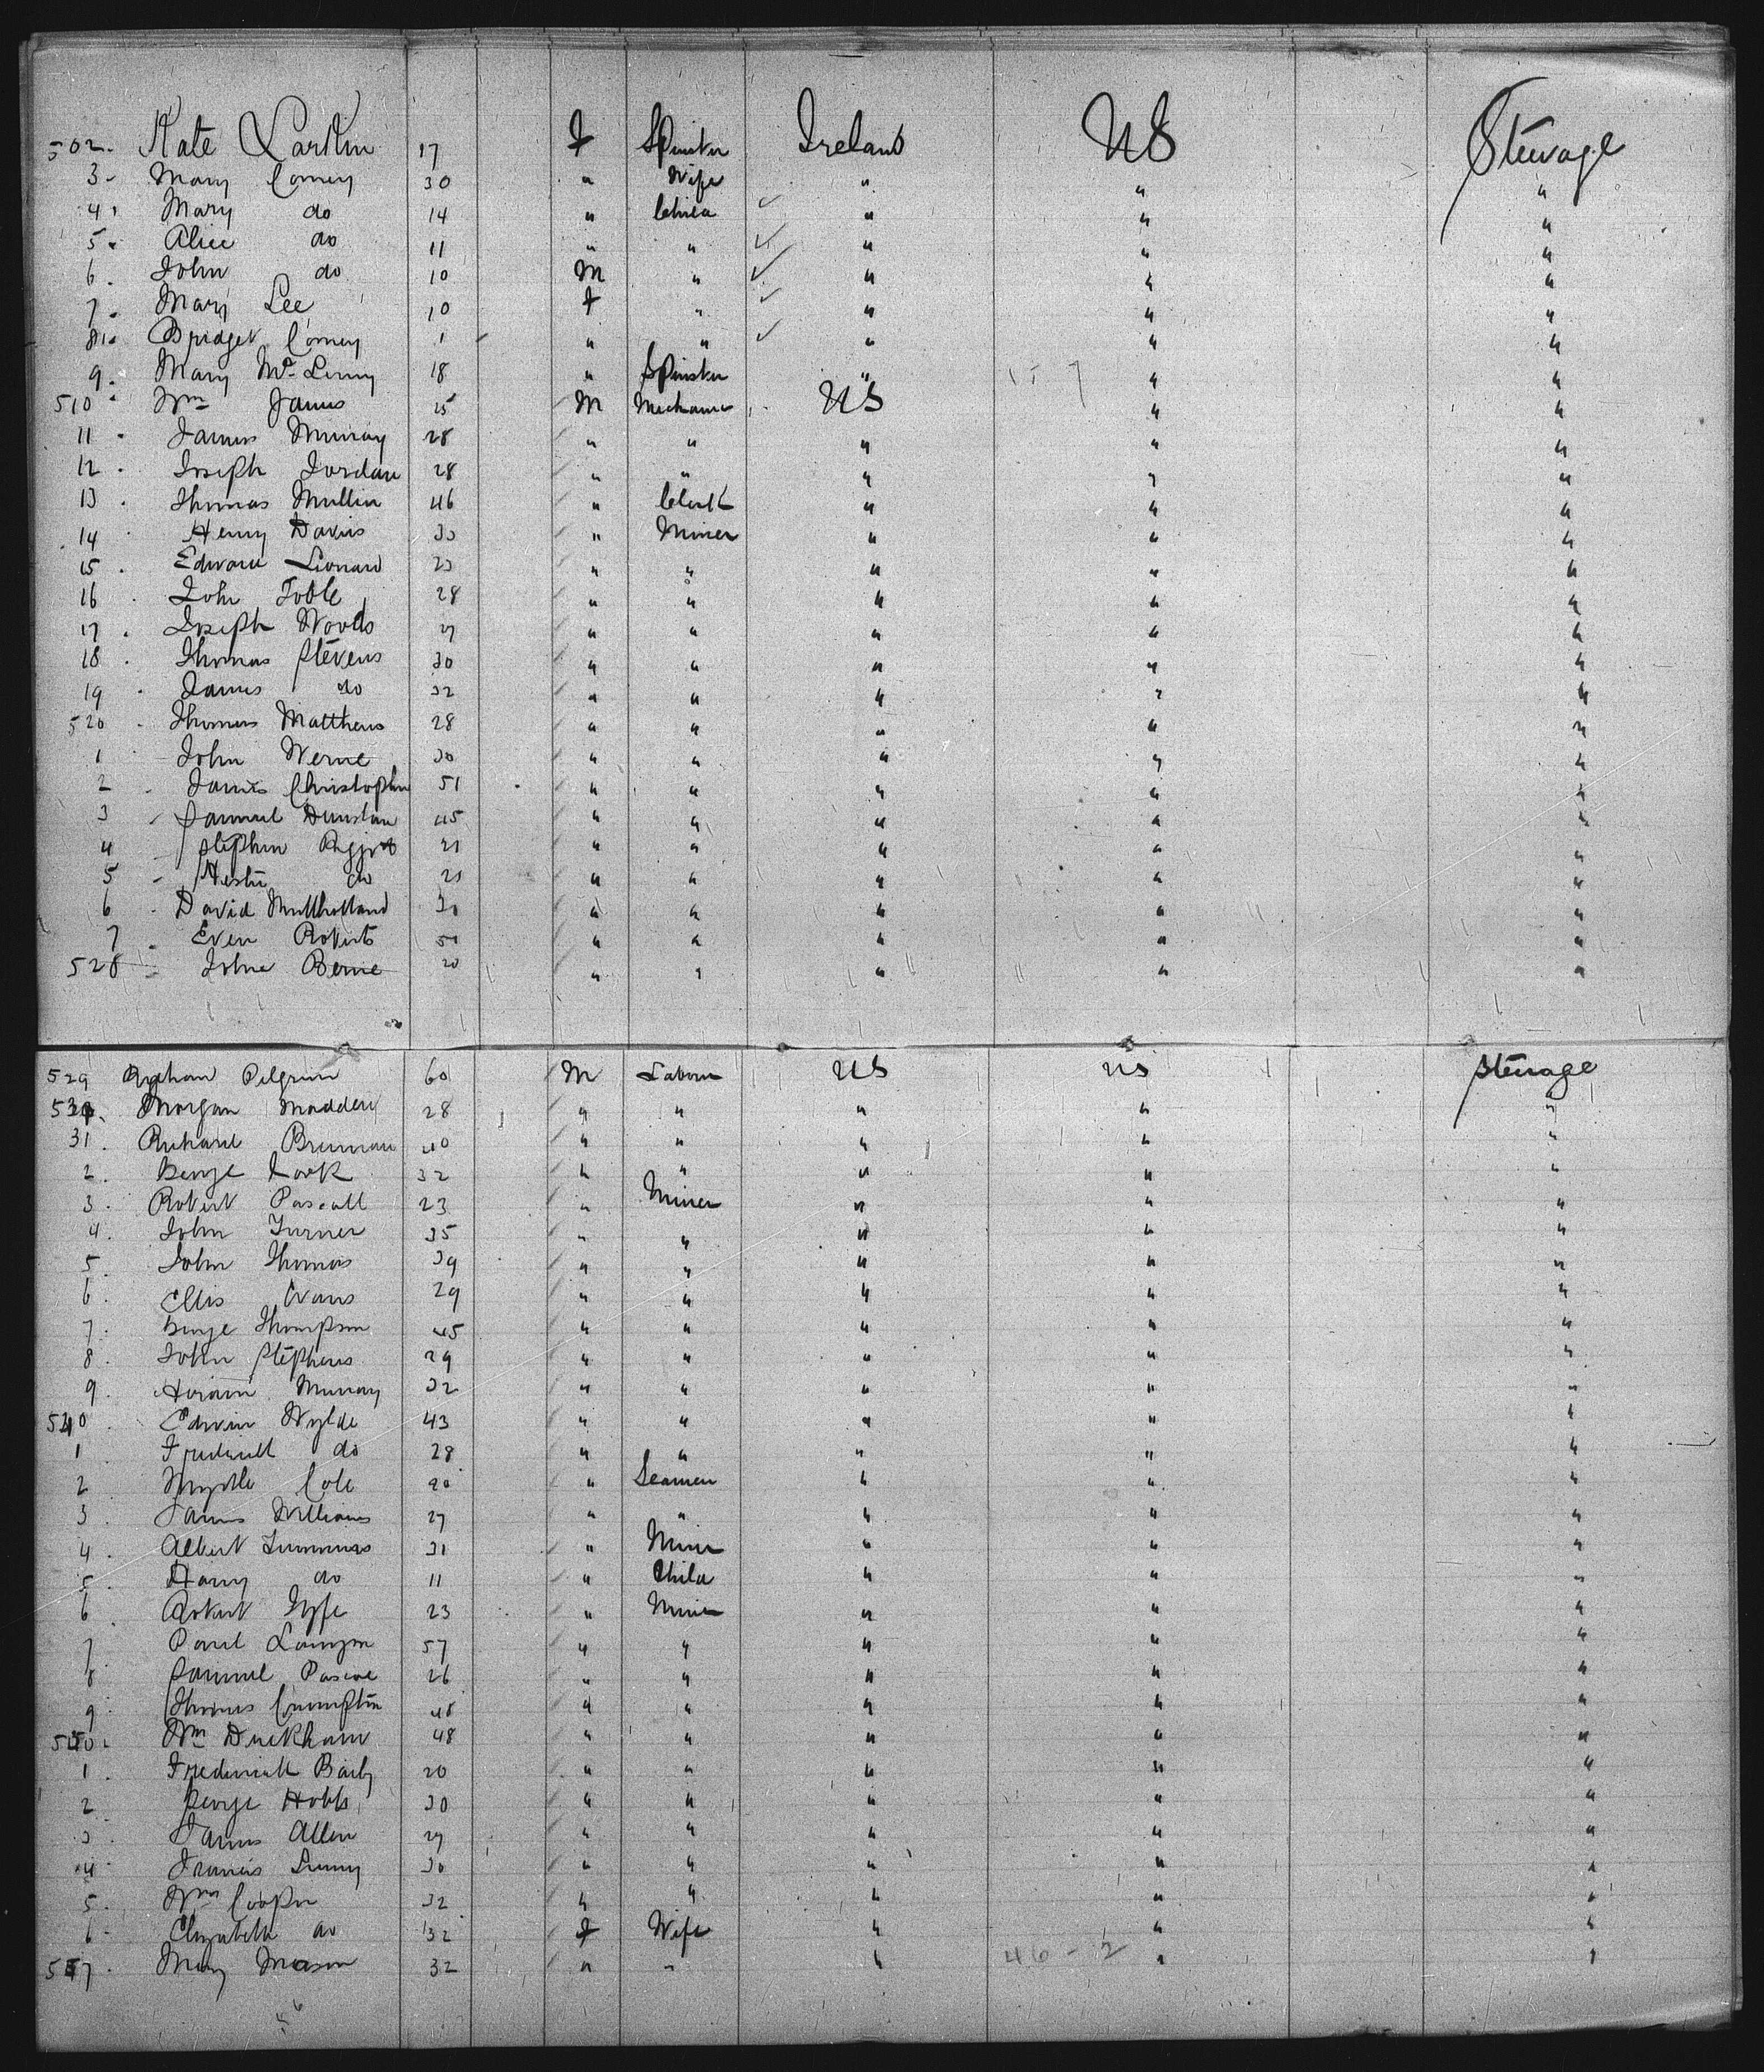 502. Kate Larkin 17 F Spinster Ireland US Steerage
3 - Mary Comey 30 " Wife " " "
4 " Mary do 14 " Child ✓ " " "
5 " Alice do 11 " " ✓ " " "
6 . John do 10 M " ✓ " " "
7 . Mary Lee 10 F " ✓ " " "
8 . Bridget Comey 1 " " ✓ " " "
9 . Mary Mc Linny 18 " Spinster " "  "
510 Wm James 25 M Mechanic US " "
11 James Murray 28 " " " " "
12 . Joseph Jordan 28 " " " " "
13 . Thomas Mullin 46 " Clerk " " "
14 Henry Davis 33 " Miner " " "
15 . Edward Lionard 23 " " " " "
16 . John Toble 28 " " " " "
17 . Joseph Woods 27 " " " " "
18 . Thomas Stevens 30 " " " " "
19 . James do 32 " " " " "
520 Thomas Matthews 28 " " " " "
1 John Werne 30 " " " " "
2 James Christopher 51 " " " " "
3 Samuel Dunstan 45 " " " " "
4 Stephen 21 " " " " "
5 do 21 " " " " "
6 David Mullholland 31 " " " " "
7 Even Roberts 51 " " " " "
528 John Berne 20 " " " " "
529 Pilgrim 60 M Laborer US US Steerage
530. Morgan Madden 28 " " " " "
31 . Richard Brennan 40 " " " " "
2 . George Look 32 " " " " "
3 . Robert Pascall 23 " Miner " " "
4 . John Turner 35 " " " " "
5 . John Thomas 39 " " " " "
6 . Ellis Evans 29 " " " " "
7 . George Thompson 45 " " " " "
8 . John Stephens 29 " " " " "
9 . Hiram Murray 32 " " " " "
540 . Edwin Wylde 43 " " " " "
1 . Frederick do 28 " " " " "
2 Cole 20 " Seamen " " "
3 . James Williams 27 " " " " "
4 . Albert Timmins 31 " Miner " " "
5 . Harry do 11 " Child " " "
6 . Robert Fyfe 23 " Miner " " "
7 Paul 57 " " " " "
8 Samuel Pascoe 26 " " " " "
9 . Thomas Crumpton 48 " " " " "
550 . Wm Duckham 48 " " " " "
1 . Frederick Baily 20 " " " " "
2 George Hobbs 30 " " " " "
3 . James Allen 29 " " " " "
4 Francis Linny 30 " " " " "
5 . Wm Cooper 32 " " " " "
6 . Elizabeth do 32 F Wife " " "
557 . Mary Mason 32 " " " 46 - 2 " "